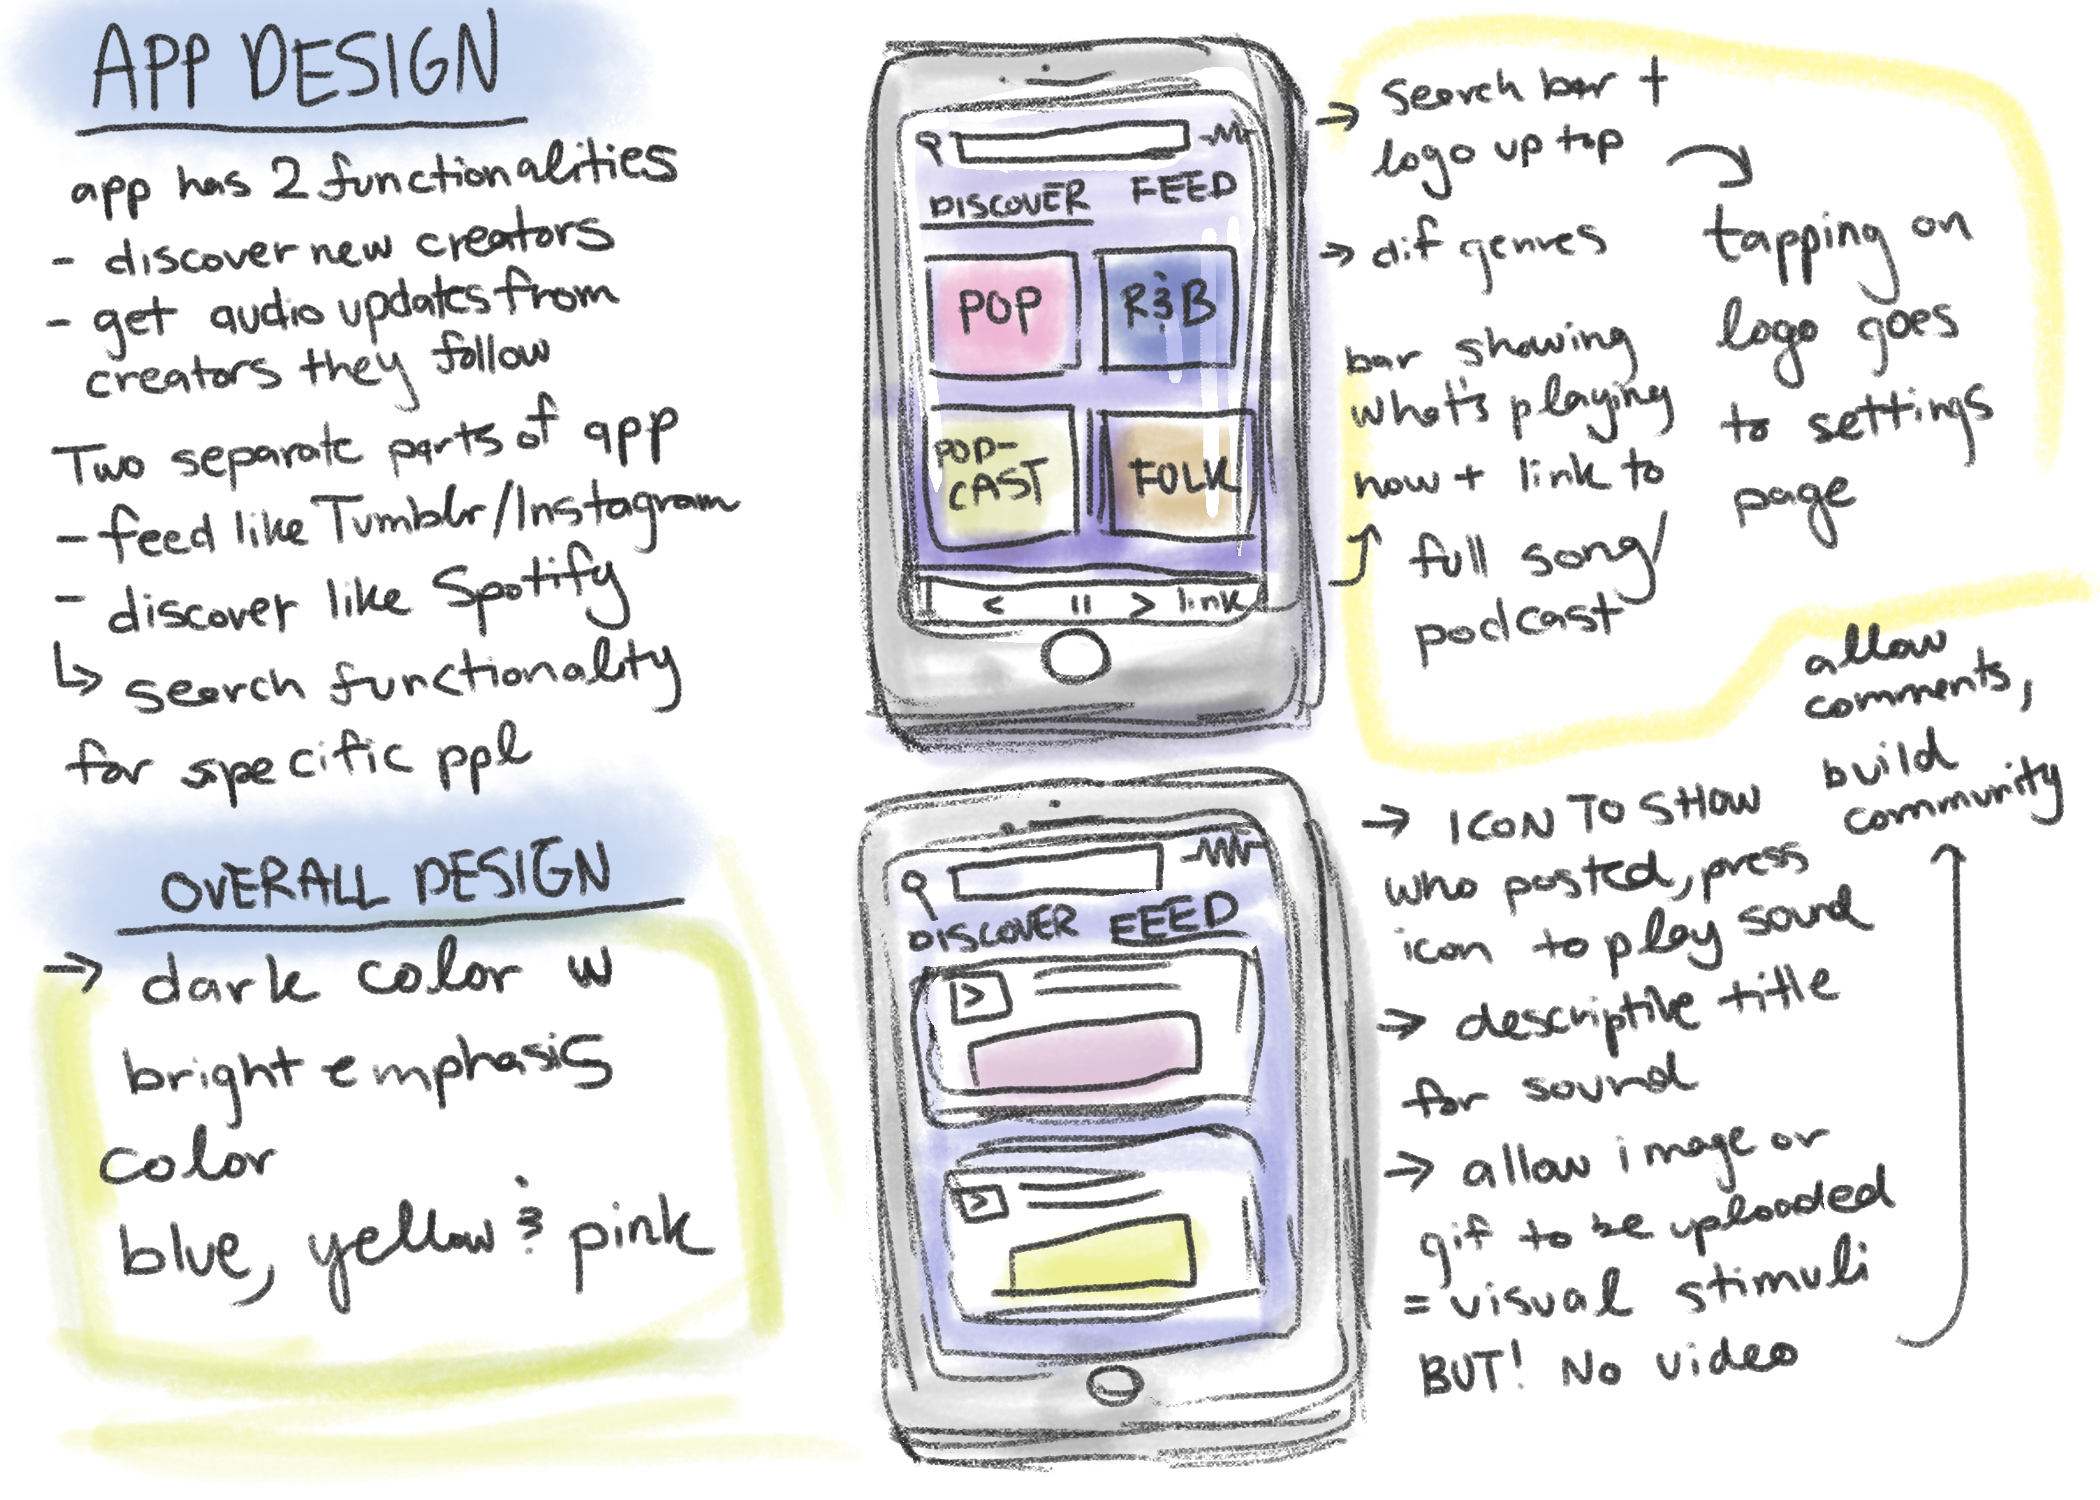 APP DESIGN
app has 2 functionalities
- discover new creators
- get audio updates from
creators they follow
Two separate parts of app
- feed like Tumblr/Instagram
- discover like Spotify
↳ search functionality
for specific ppl
OVERALL DESIGN
→ dark color w
bright emphasis
color
blue, yellow & pink
DISCOVER FEED
POP R&B
POD-
CAST
FOLK
< || > link
→ search bar +
logo up top
tapping on
logo goes
to settings
page
→ dif genres
bar showing
what's playing
now + link to
full song/
podcast
DISCOVER FEED
>
>
→ ICON TO SHOW
who posted, press
icon to play sound
→ descriptive title
for sound
→ allow image or
gif to be uploaded
= visual stimuli
BUT! No video
allow
comments,
build
community